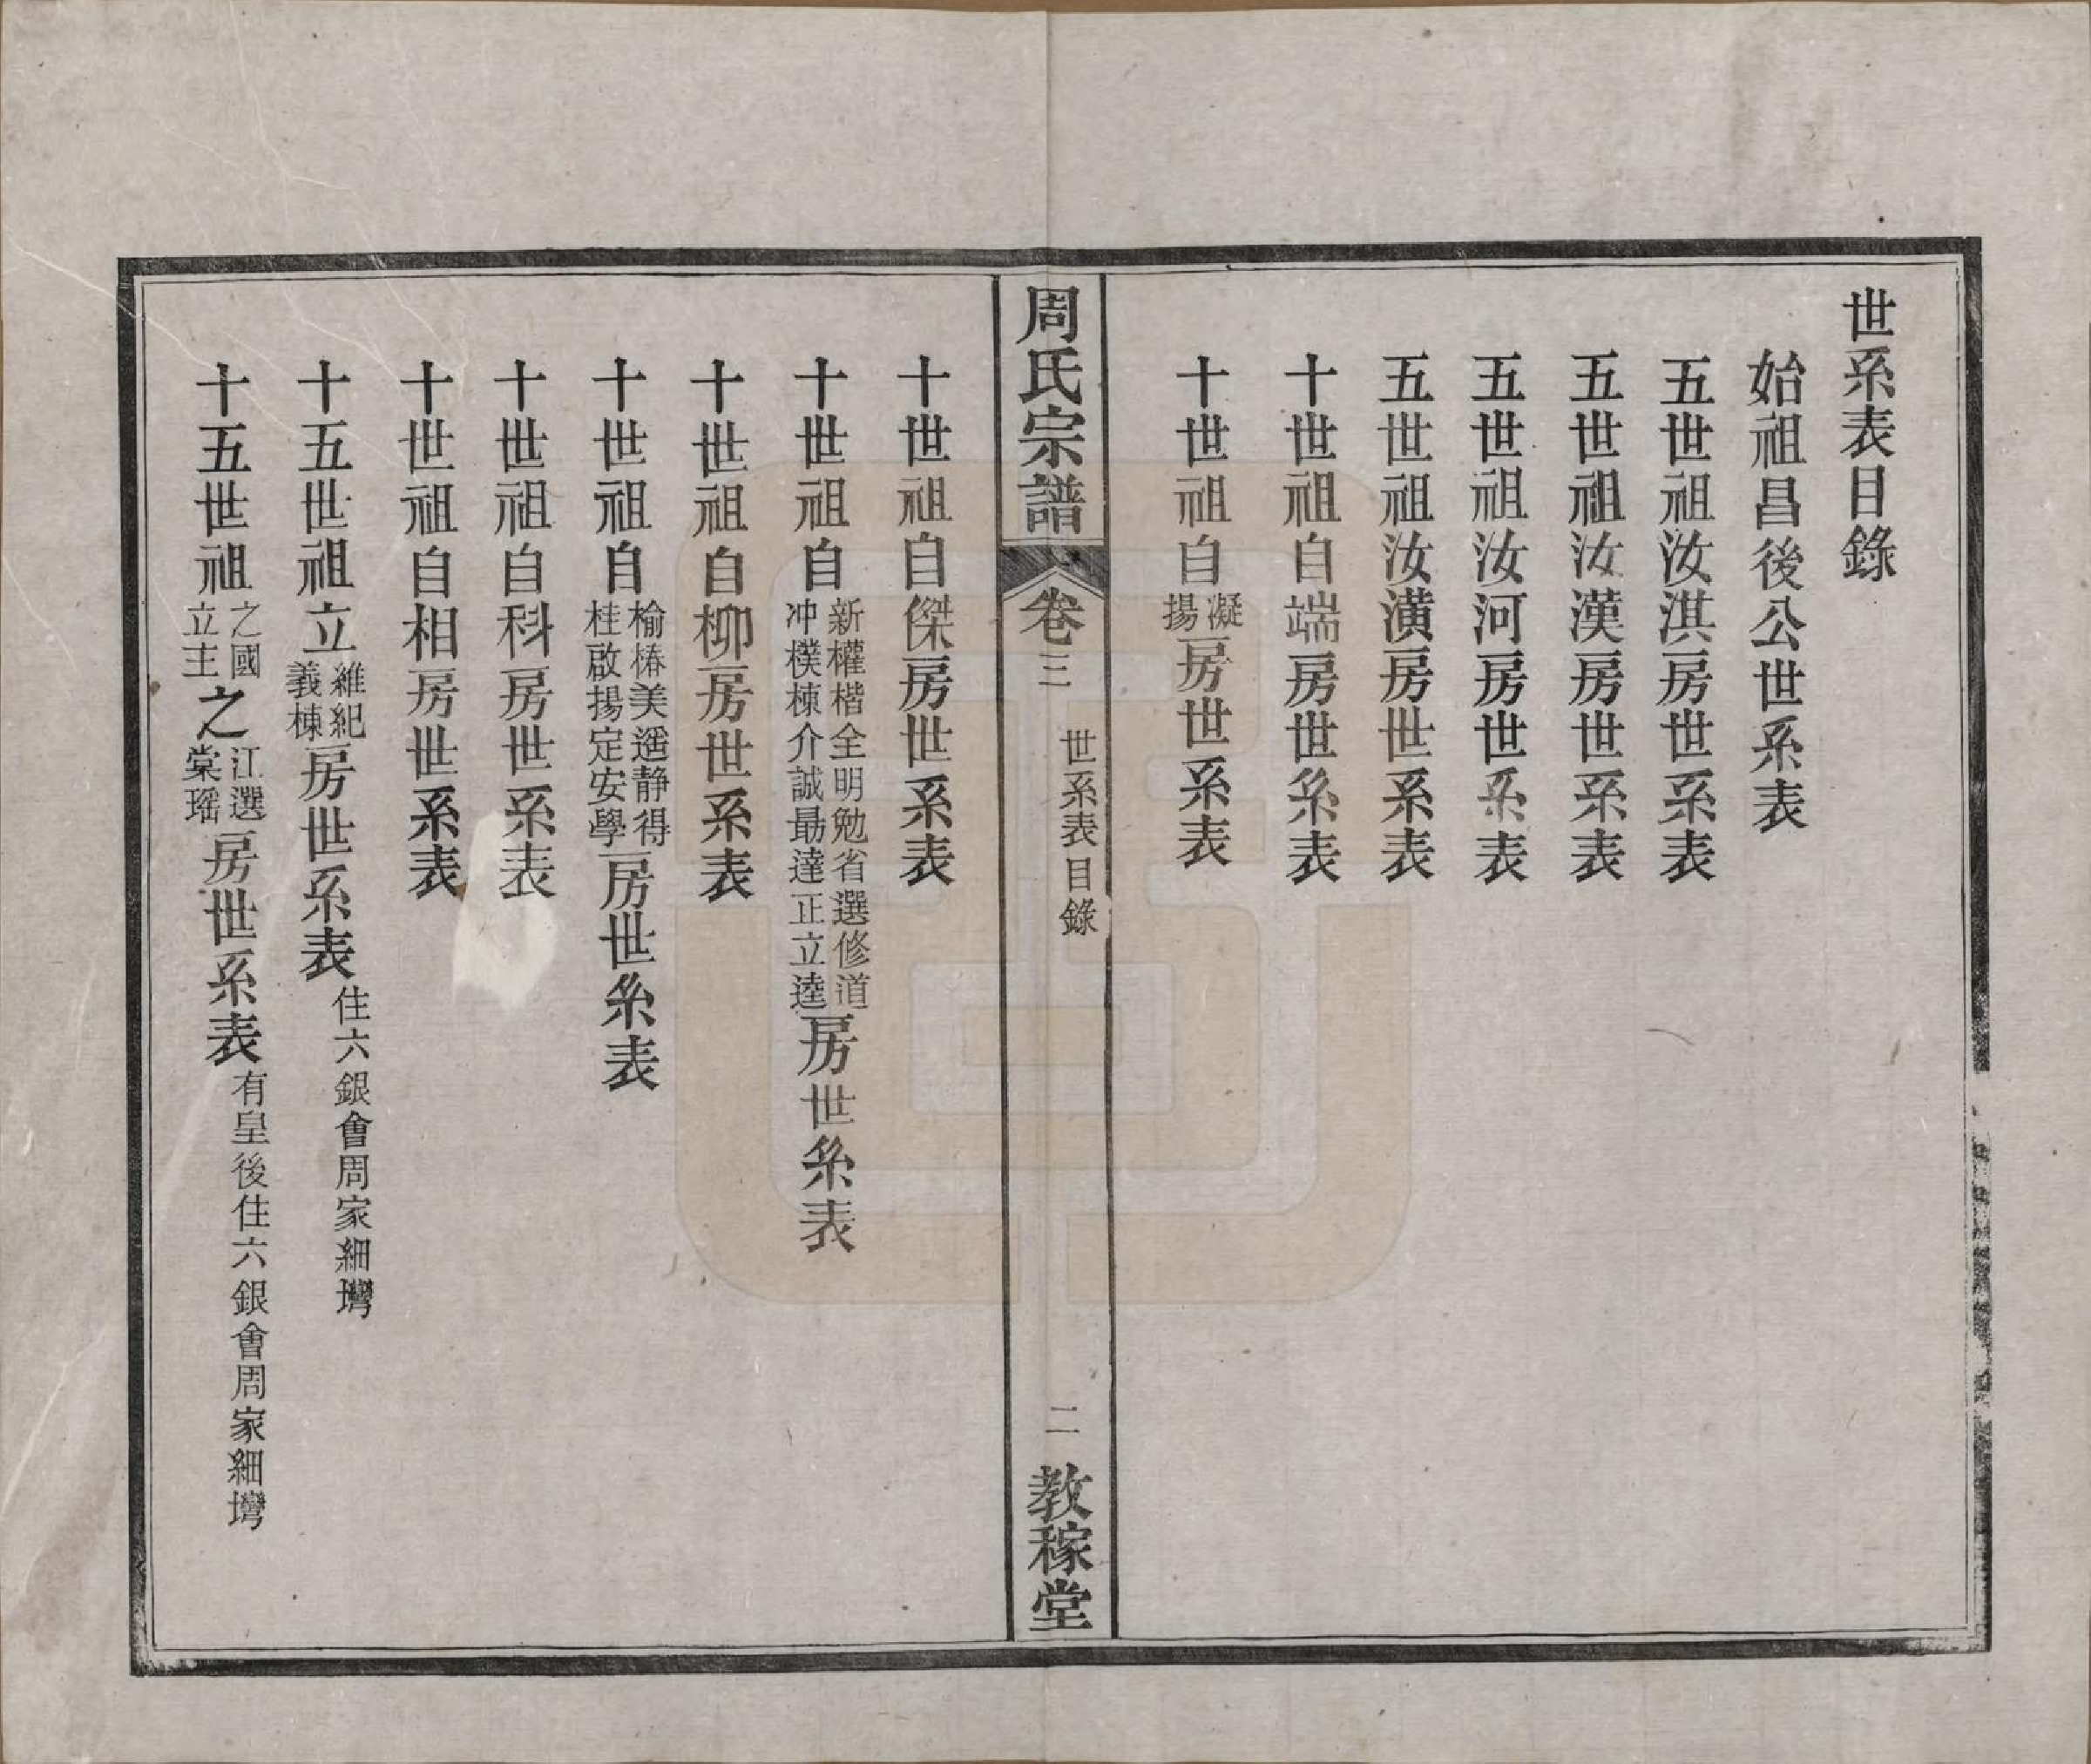 世系表目錄
始祖昌後公世系表
五世祖汝淇房世系表
五世祖汝漢房世系表
五世祖汝河房世系表
五世祖汝潢房世系表
十世祖自端房世系表
十世祖自凝揚房世系表
周氏宗譜 卷三 世系表目錄 二 教稼堂
十世祖自傑房世系表
十世祖自新權楷全明勉省選修道冲樸棟介誠最達正立逵房世系表
十世祖自柳房世系表
十世祖自榆椿美遥静得桂啟揚定安學房世系表
十世祖自科房世系表
十世祖自相房世系表
十五世祖立維紀義棟房世系表住六銀會周家細壪
十五世祖之國立主之江選棠瑶房世系表有皇後住六銀會周家細壪